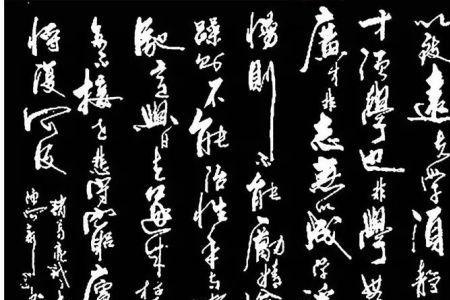 以致遠夫学須靜
才須學也非學無
廣才非志無以成学淫
慢則不能勵精
躁則不能治性年与
馳意與日去遂成枯
多不接世悲守窮廬
將復何及
諸葛亮誡